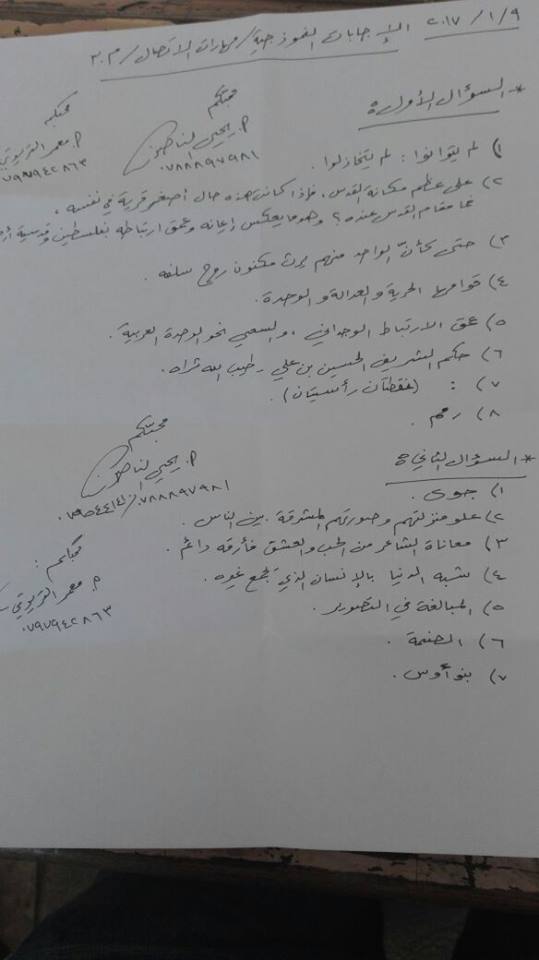 ٢٠١٧/١/٩ الإجابات النموذجية/مهارات الاتصال/م.٣
* السؤال الأول:
محبتكم
م. يحيى
٠٧٨٨٨٩٧٩٨١
محبكم
م. معمر القريوتي
٠٧٩٧٩٤٢٨٦٣
١) لم يتوانوا: لم يتخاذلوا.
٢) على عظم مكانة القدس، فإذا كانت هذه حال أصغر قرية في نفسه،
فما مقام القدس عنده؟ وهو ما يعكس إيمانه وعمق ارتباطه بفلسطين وقدسية
٣) حتى كأنّ الواحد منهم يرث مكنون روح سلفه.
٤) قوامها الحرية والعدالة والوحدة.
٥) عمق الارتباط الوجداني، والسعي نحو الوحدة العربية.
٦) حكم الشريف الحسين بن علي - طيب الله ثراه.
٧) : (نقطتان رأسيتان).
٨) رمم.
محبتكم
م. يحيى
٠٧٨٨٨٩٧٩٨١/
* السؤال الثاني:
١) جوى.
٢) علو منزلتهم وصورتهم المشرقة بين الناس.
٣) معاناة الشاعر من الحب والعشق فأرقه دائم.
٤) شبه الدنيا بالإنسان الذي يفجع غيره.
٥) المبالغة في التصوير.
٦)
٧) بنو أوس.
محبكم:
م. معمر القريوتي
٠٧٩٧٩٤٢٨٦٣